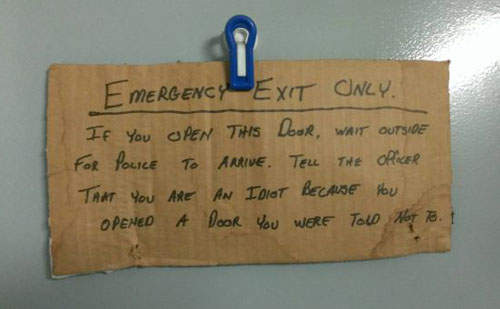 Emergency Exit Only.
If you open this Door, wait outside
For Police to arrive. Tell the officer
That you are an Idiot Because you
opened a Door you were told not to.